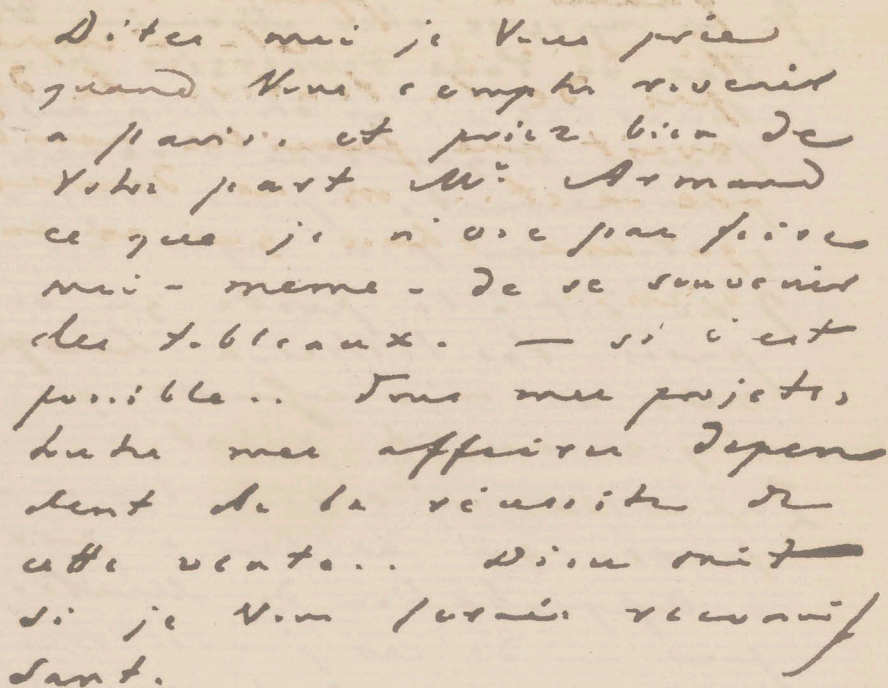 Dites moi je Vous prie
quand Vous comptez revenir
a paris. et priez bien de
Votre part Mr Armand
ce que je n'ose pas faire
moi-meme - de se souvenir
des tableaux. — si c'est
possible.. Tous mes projets,
toutes mes affaires depen
dent de la réussite de
cette vente.. Dieu sait
si je Vous serais reconnais
sant.